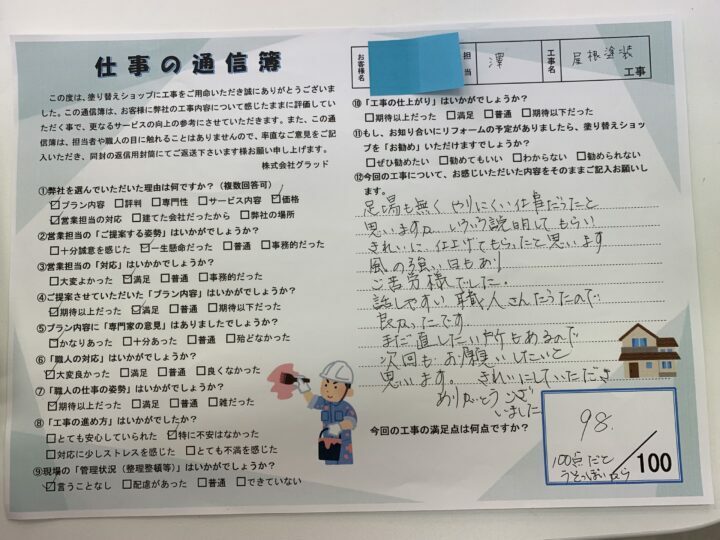 仕事の通信簿
この度は、塗り替えショップに工事をご用命いただき誠にありがとうございま
した。この通信簿は、お客様に弊社の工事内容について感じたままに評価してい
ただく事で、更なるサービスの向上の参考にさせていただきます。また、この通
信簿は、担当者や職人の目に触れることはありませんので、率直なご意見をご記
入いただき、同封の返信用封筒にてご返送下さいます様お願い申し上げます。
株式会社グラッド
①弊社を選んでいただいた理由は何ですか?(複数回答可)
☑プラン内容 □評判 □専門性 □サービス内容 ☑価格
☑営業担当の対応 □建てた会社だったから □弊社の場所
②営業担当の「ご提案する姿勢」はいかがでしょうか?
□十分誠意を感じた ☑一生懸命だった □普通 □事務的だった
③営業担当の「対応」はいかがでしょうか?
□大変よかった ☑満足 □普通 □事務的だった
④ご提案させていただいた「プラン内容」はいかがでしょうか?
☑期待以上だった ☑満足 □普通 □期待以下だった
⑤プラン内容に「専門家の意見」はありましたでしょうか?
☑かなりあった □十分あった □普通 □殆どなかった
⑥「職人の対応」はいかがでしょうか?
☑大変良かった □満足 □普通 □良くなかった
⑦「職人の仕事の姿勢」はいかがでしょうか?
☑期待以上だった □満足 □普通 □雑だった
⑧「工事の進め方」はいかがでしたか?
□とても安心していられた ☑特に不安はなかった
□対応に少しストレスを感じた □とても不満を感じた
⑨現場の「管理状況(整理整頓等)」はいかがでしょうか?
☑言うことなし □配慮があった □普通 □できていない
お客様名
担当
澤
工事名
屋根塗装
工事
⑩「工事の仕上がり」はいかがでしょうか?
□期待以上だった □満足 □普通 □期待以下だった
⑪もし、お知り合いにリフォームの予定がありましたら、塗り替えショッ
プを「お勧め」いただけますでしょうか?
□ぜひ勧めたい □勧めてもいい □わからない □勧められない
⑫今回の工事について、お感じいただいた内容をそのままご記入お願いし
ます。
足場も無く やりにくい仕事だったと
思いますが いろいろ説明して もらい
きれいに 仕上げてもらったと思います
風の強い日もあり
ご苦労様でした。
話しやすい 職人さんだったので
良かったです
まだ直したい か所もあるので
次回も お願いしたいと
思います。 きれいにしていただき
ありがとうござ
いました
今回の工事の満足点は何点ですか?
98.
/100
100点だと
うそっぽいから